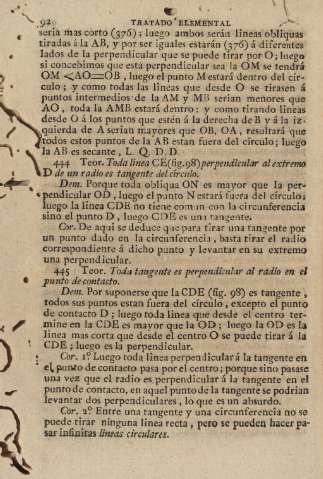 92 TRATADO ELEMENTAL
seria mas corto (376); luego ambos serán lineas obliquas
tiradas á la AB, y por ser iguales estarán (376) á diferentes
lados de la perpendicular que se puede tirar por O; luego
si concebimos que esta perpendicular sea la OM se tendrá
OM < AO=OB, luego el punto M estará dentro del cír-
culo; y como todas las lineas que desde O se tirasen á
puntos intermedios de la AM y MB serian menores que
AO, toda la AMB estará dentro; y como tirando lineas
desde O á los puntos que estén á la derecha de B y á la iz-
quierda de A serian mayores que OB, OA, resultará que
todos estos puntos de la AB estan fuera del círculo; luego
la AB es secante, L. Q. D. D.
444 Teor. Toda linea CE (fig. 98) perpendicular al extremo
D de un radio es tangente del círculo.
Dem. Porque toda obliqua ON es mayor que la per-
pendicular OD, luego el punto N estará fuera del círculo;
luego la linea CDE no tiene comun con la circunferencia
sino el punto D, luego CDE es una tangente.
Cor. De aqui se deduce que para tirar una tangente por
un punto dado en la circunferencia, basta tirar el radio
correspondiente á dicho punto y levantar en su extremo
una perpendicular.
445 Teor. Toda tangente es perpendicular al radio en el
punto de contacto.
Dem. Por suponerse que la CDE (fig. 98) es tangente,
todos sus puntos estan fuera del círculo, excepto el punto
de contacto D; luego toda linea que desde el centro ter-
mine en la CDE es mayor que la OD; luego la OD es la
linea mas corta que desde el centro O se puede tirar á la
CDE; luego es la perpendicular.
Cor. 1.º Luego toda linea perpendicular á la tangente en
el punto de contacto pasa por el centro; porque sino pasase
una vez que el radio es perpendicular á la tangente en el
punto de contacto, en aquel punto de la tangente se podrian
levantar dos perpendiculares, lo que es un absurdo.
Cor. 2.º Entre una tangente y una circunferencia no se
puede tirar ninguna linea recta, pero se pueden hacer pa-
sar infinitas lineas circulares.